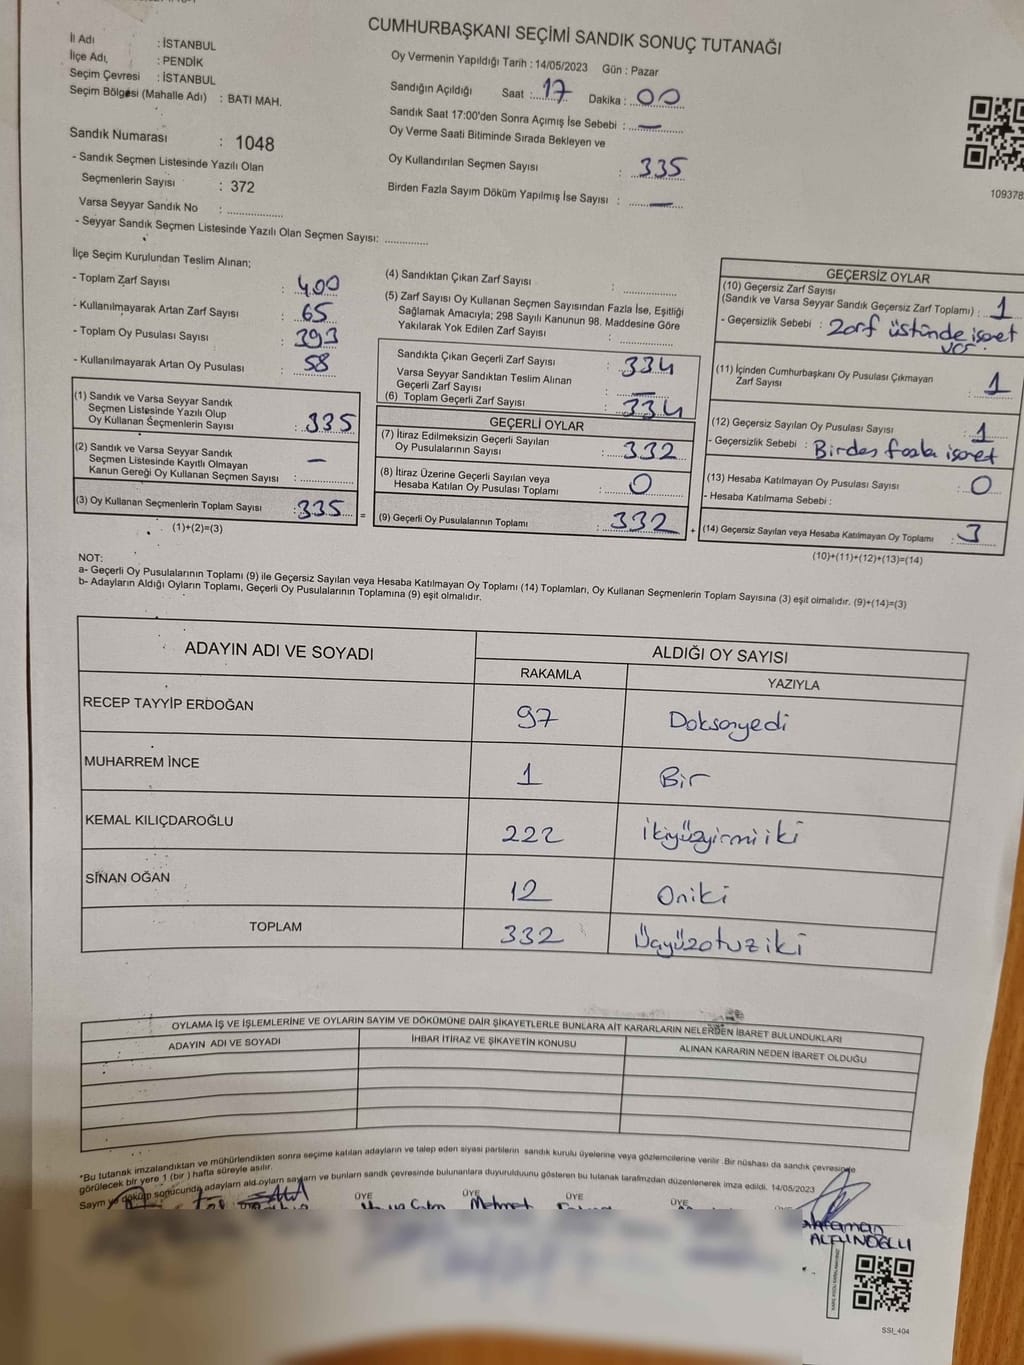 CUMHURBAŞKANI SEÇİMİ SANDIK SONUÇ TUTANAĞI
İl Adı : İSTANBUL
İlçe Adı, : PENDİK
Seçim Çevresi : İSTANBUL
Seçim Bölgesi (Mahalle Adı) : BATI MAH.
Sandık Numarası : 1048
- Sandık Seçmen Listesinde Yazılı Olan
Seçmenlerin Sayısı : 372
Varsa Seyyar Sandık No : ................
- Seyyar Sandık Seçmen Listesinde Yazılı Olan Seçmen Sayısı: ............
Oy Vermenin Yapıldığı Tarih : 14/05/2023 Gün : Pazar
Sandığın Açıldığı Saat : 17 Dakika : 00
Sandık Saat 17:00'den Sonra Açımış İse Sebebi : —
Oy Verme Saati Bitiminde Sırada Bekleyen ve
Oy Kullandırılan Seçmen Sayısı : 335
Birden Fazla Sayım Döküm Yapılmış İse Sayısı : —
109378
İlçe Seçim Kurulundan Teslim Alınan;
- Toplam Zarf Sayısı : 400
- Kullanılmayarak Artan Zarf Sayısı : 65
- Toplam Oy Pusulası Sayısı : 393
- Kullanılmayarak Artan Oy Pusulası : 58
(1) Sandık ve Varsa Seyyar Sandık
Seçmen Listesinde Yazılı Olup
Oy Kullanan Seçmenlerin Sayısı : 335
(2) Sandık ve Varsa Seyyar Sandık
Seçmen Listesinde Kayıtlı Olmayan
Kanun Gereği Oy Kullanan Seçmen Sayısı : —
(3) Oy Kullanan Seçmenlerin Toplam Sayısı : 335 =
(1)+(2)=(3)
(4) Sandıktan Çıkan Zarf Sayısı : ................
(5) Zarf Sayısı Oy Kullanan Seçmen Sayısından Fazla İse, Eşitliği
Sağlamak Amacıyla; 298 Sayılı Kanunun 98. Maddesine Göre
Yakılarak Yok Edilen Zarf Sayısı : ................
Sandıkta Çıkan Geçerli Zarf Sayısı : 334
Varsa Seyyar Sandıktan Teslim Alınan
Geçerli Zarf Sayısı : —
(6) Toplam Geçerli Zarf Sayısı : 334
GEÇERLİ OYLAR
(7) İtiraz Edilmeksizin Geçerli Sayılan
Oy Pusulalarının Sayısı : 332
(8) İtiraz Üzerine Geçerli Sayılan veya
Hesaba Katılan Oy Pusulası Toplamı : 0
(9) Geçerli Oy Pusulalarının Toplamı : 332 +
GEÇERSİZ OYLAR
(10) Geçersiz Zarf Sayısı
(Sandık ve Varsa Seyyar Sandık Geçersiz Zarf Toplamı) : 1
- Geçersizlik Sebebi : Zarf üstünde işaret
var.
(11) İçinden Cumhurbaşkanı Oy Pusulası Çıkmayan
Zarf Sayısı : 1
(12) Geçersiz Sayılan Oy Pusulası Sayısı : 1
- Geçersizlik Sebebi : Birden fazla işaret
(13) Hesaba Katılmayan Oy Pusulası Sayısı : 0
- Hesaba Katılmama Sebebi :
(14) Geçersiz Sayılan veya Hesaba Katılmayan Oy Toplamı : 3
(10)+(11)+(12)+(13)=(14)
NOT:
a- Geçerli Oy Pusulalarının Toplamı (9) ile Geçersiz Sayılan veya Hesaba Katılmayan Oy Toplamı (14) Toplamları, Oy Kullanan Seçmenlerin Toplam Sayısına (3) eşit olmalıdır. (9)+(14)=(3)
b- Adayların Aldığı Oyların Toplamı, Geçerli Oy Pusulalarının Toplamına (9) eşit olmalıdır.
ADAYIN ADI VE SOYADI ALDIĞI OY SAYISI
RAKAMLA YAZIYLA
RECEP TAYYİP ERDOĞAN 97 Doksanyedi
MUHARREM İNCE 1 Bir
KEMAL KILIÇDAROĞLU 222 İkiyüzyirmiiki
SİNAN OĞAN 12 Oniki
TOPLAM 332 Üçyüzotuziki
OYLAMA İŞ VE İŞLEMLERİNE VE OYLARIN SAYIM VE DÖKÜMÜNE DAİR ŞİKAYETLERLE BUNLARA AİT KARARLARIN NELERDEN İBARET BULUNDUKLARI
ADAYIN ADI VE SOYADI İHBAR İTİRAZ VE ŞİKAYETİN KONUSU ALINAN KARARIN NEDEN İBARET OLDUĞU
*Bu tutanak imzalandıktan ve mühürlendikten sonra seçime katılan adayların ve talep eden siyasi partilerin sandık kurulu üyelerine veya gözlemcilerine verilir. Bir nüshası da sandık çevresinde
görülecek bir yere 1 (bir) hafta süreyle asılır.
Sayım ve döküm sonucunda adayların aldı oyların sayları ve bunların sandık çevresinde bulunanlara duyurulduunu gösteren bu tutanak tarafımızdan düzenlenerek imza edildi. 14/05/2023
ÜYE ÜYE ÜYE ÜYE
Mehmet
ALTUNOĞLU
SSI_404